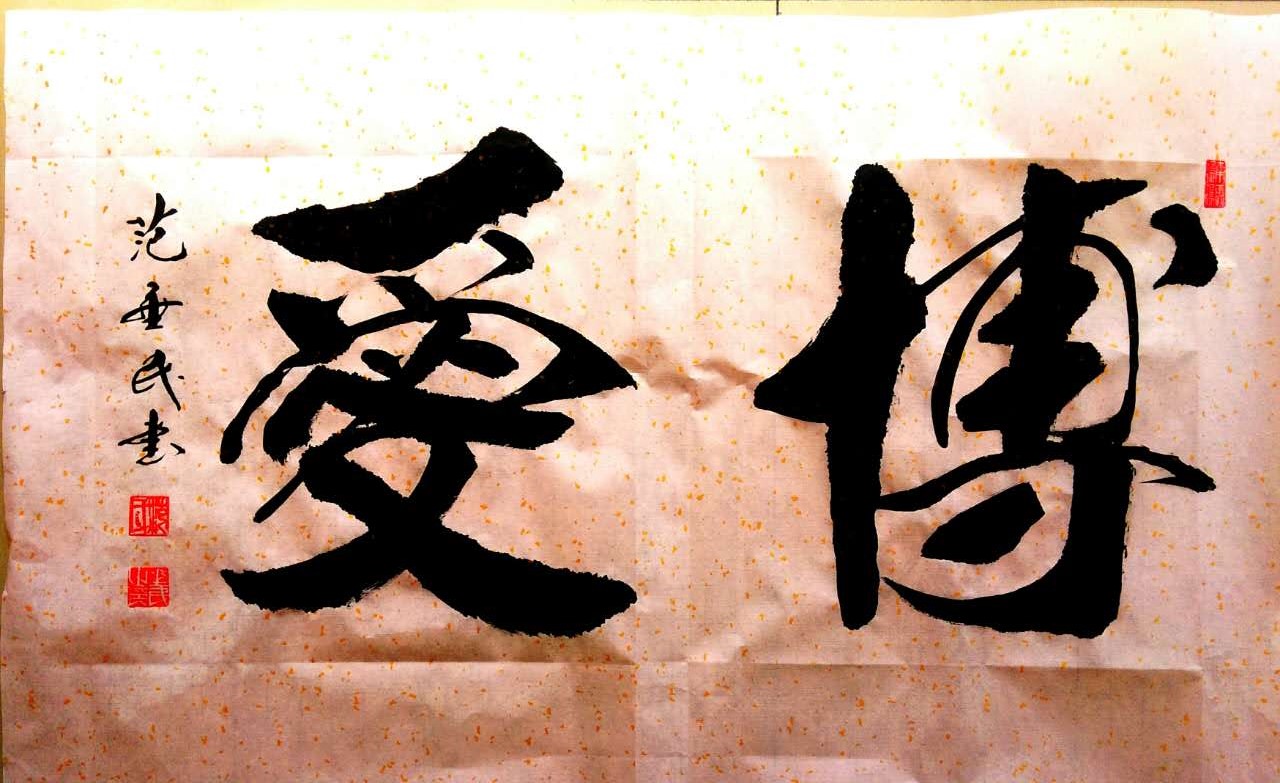 博愛
范垂民书